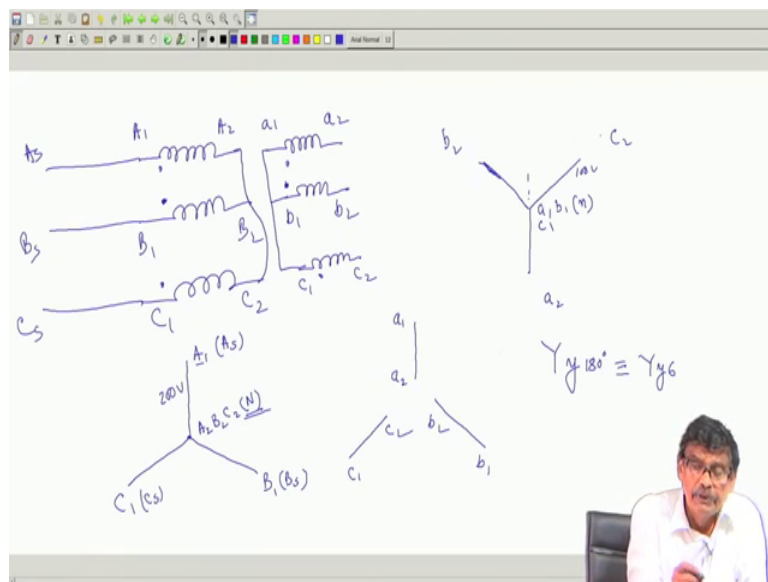 Arial Normal 12
A1 A2 a1 a2
As
Bs B1 B2 b1 b2
Cs C1 C2 c1 c2
b2 c2
100V
a1 b1 (n)
c1
a2
A1 (As)
200V
A2 B2 C2 (N)
C1 (Cs) B1 (Bs)
a1
a2
c2 b2
c1 b1
Yy 180° ≡ Yy6